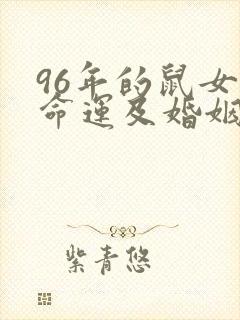 96年的鼠女
命运及婚姻
紫青悠